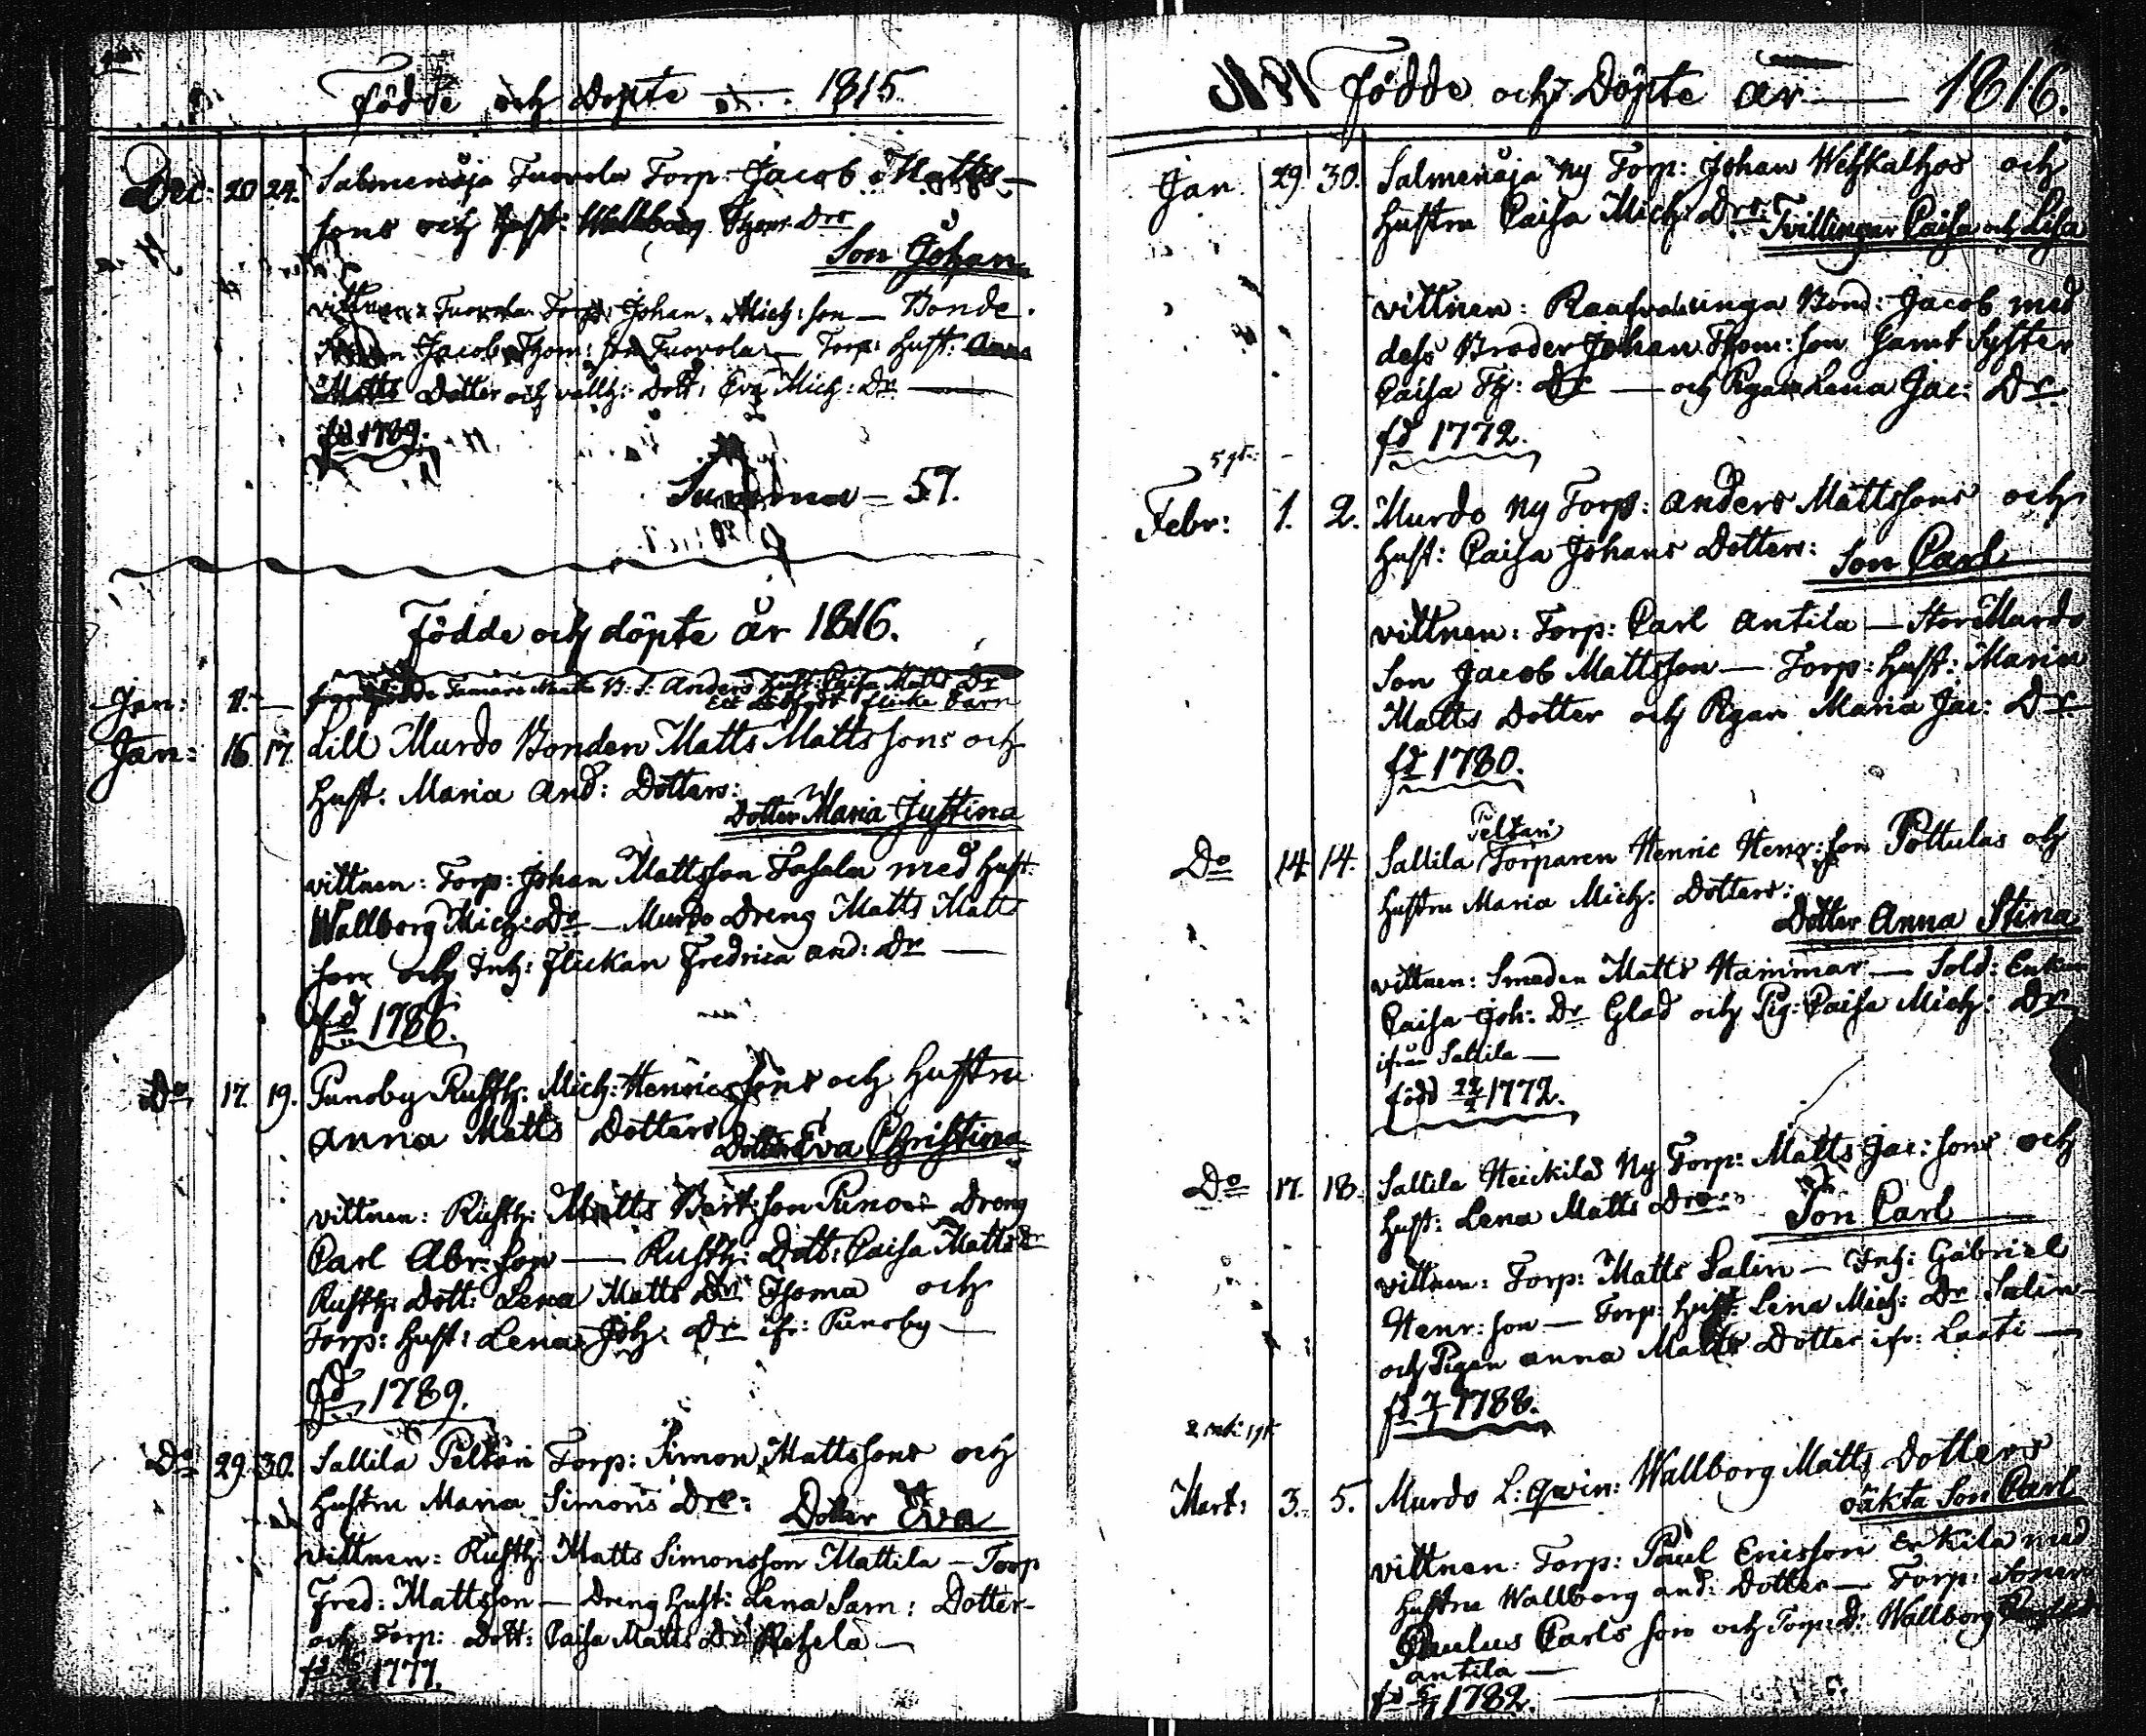 Födde och Döpte 1815.
Dec: 20 24. Salmenoja Tuorola Torp: Jacob Matts-
sons och Hust: Wallborg Thom: Drs
Son Johan
vittnen: Tuorola Torp: Johan Mich: son — Bonde
Jacob Thom: son Tuorola — Torp: Hust: Anna
Matts Dotter och Dott: Eva Mich: Dr —
fd 1789.
Summa — 57.
Födde och döpte år 1816.
Jan: Anders Hust: Caisa Matts Dr
flicke barn
Jan: 16. 17. Lill Murdo Bonden Matts Mattssons och
Hust. Maria And: Dotters:
Dotter Maria Justina
vittnen: Torp: Johan Mattsson Tasala med Hust:
Wallborg Mich: Dr — Murdo Dreng Matts Matts
son och Inh: Flickan Fredrica And: Dr —
fd 1786.
Do 17. 19. Punoby Rusth: Mich: Henricssons och Hustru
Anna Matts Dotters
Dotter Eva Christina
vittnen: Rusth: Matts Bert: son Dreng
Carl Abr: son — Rusth: Dott: Caisa Matts Dr
Rusth: Dott: Lena Matts Dr Thoma och
Torp: Hust: Lena Joh: Dr ifr: Punoby —
fd 1789.
Do 29. 30. Sallila Peltari Torp: Simon Mattssons och
Hustru Maria Simons Drs:
Dotter Eva
vittnen: Rusth: Matts Simonsson Mattila — Torp
Fred: Mattsson — Dreng Hust: Lena Sam: Dotter —
och Torp: Dott: Caisa Matts Dr —
fd 1777.
Födde och Döpte år — 1816.
Jan. 29. 30. Salmenoja Ny Torp: Johan och
Hustru Caisa Mich: Drs: Tvillingar Caisa och Lisa
vittnen: Bond: Jacob med
dess Broder Johan Thom: son samt Syster
Caisa Th: Dr — och Pigan Lena Jac: Dr
fd 1772.
Febr: 1. 2. Murdo Ny Torp: Anders Mattssons och
Hust: Caisa Johans Dotters:
Son Carl
vittnen: Torp: Carl Antila — Stor Murdo
Son Jacob Mattsson — Torp: Hust: Maria
Matts Dotter och Pigan Maria Jac: Dr
fd 1780.
Peltari
Do 14. 14. Sallila Torparen Henric Henr: son Pottulas och
Hustru Maria Mich: Dotters:
Dotter Anna Stina
vittnen: Smeden Matts Hammar — Sold: Enkan
Caisa Joh: Dr Glad och Pig: Caisa Mich: Dr
ifrån Sallila —
född 1772.
Do 17. 18. Sallila Heickilä Ny Torp: Matts Jac: sons och
Hust: Lena Matts Drs:
Son Carl
vittnen: Torp: Matts Salin — Inh: Gabriel
Henr: son — Torp: Hust: Lena Mich: Dr Salin —
och Pigan Anna Matts Dotter ifr: Laati —
fd 1788.
Mart: 3. 5. Murdo L: Qvin: Wallborg Matts Dotters
oäkta Son Carl
vittnen: Torp: Paul Ericsson Erkila med
Hustru Wallborg And: Dotter — Torp: Sonen
Paulus Carls son och Torp: D: Wallborg
Antila —
fd 1782.